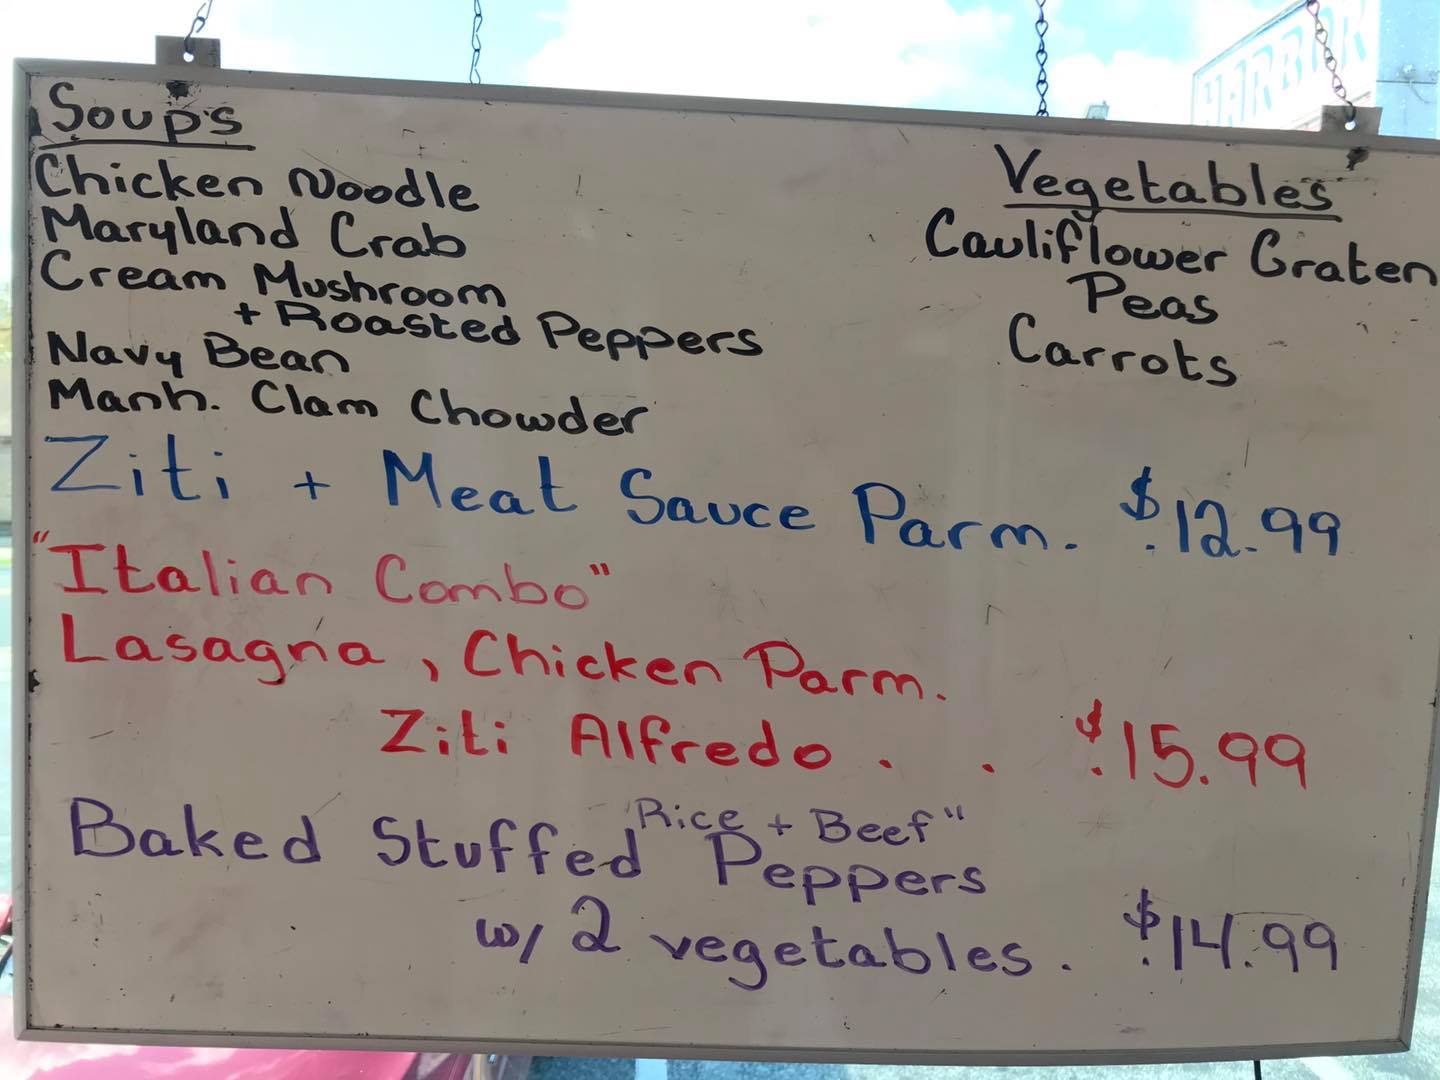 HARBOR
Soup's
Chicken Noodle
Maryland Crab
Cream Mushroom
+ Roasted Peppers
Navy Bean
Manh. Clam Chowder
Vegetables
Cauliflower Graten
Peas
Carrots
Ziti + Meat Sauce Parm. $12.99
"Italian Combo"
Lasagna, Chicken Parm.
Ziti Alfredo . . $15.99
"Rice + Beef"
Baked Stuffed Peppers
w/ 2 vegetables. $14.99